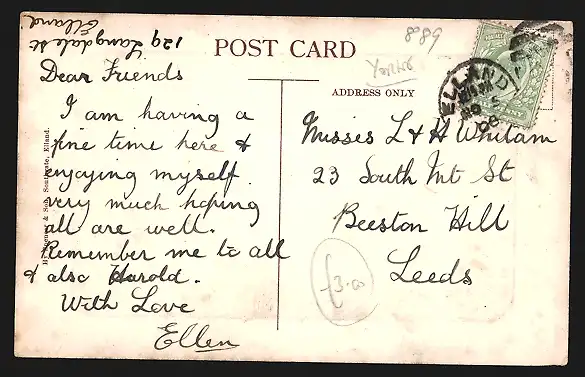 129 Langdale St
Elland
POST CARD
8989
Yorks
ADDRESS ONLY
ELLAND
Dear Friends
I am having a
fine time here &
enjoying myself
very much hoping
all are well.
Remember me to all
& also Harold.
With Love
Ellen
Misses L & H Whitam
23 South Mt St
Beeston Hill
Leeds
£3.00
& Son, Southgate, Elland.